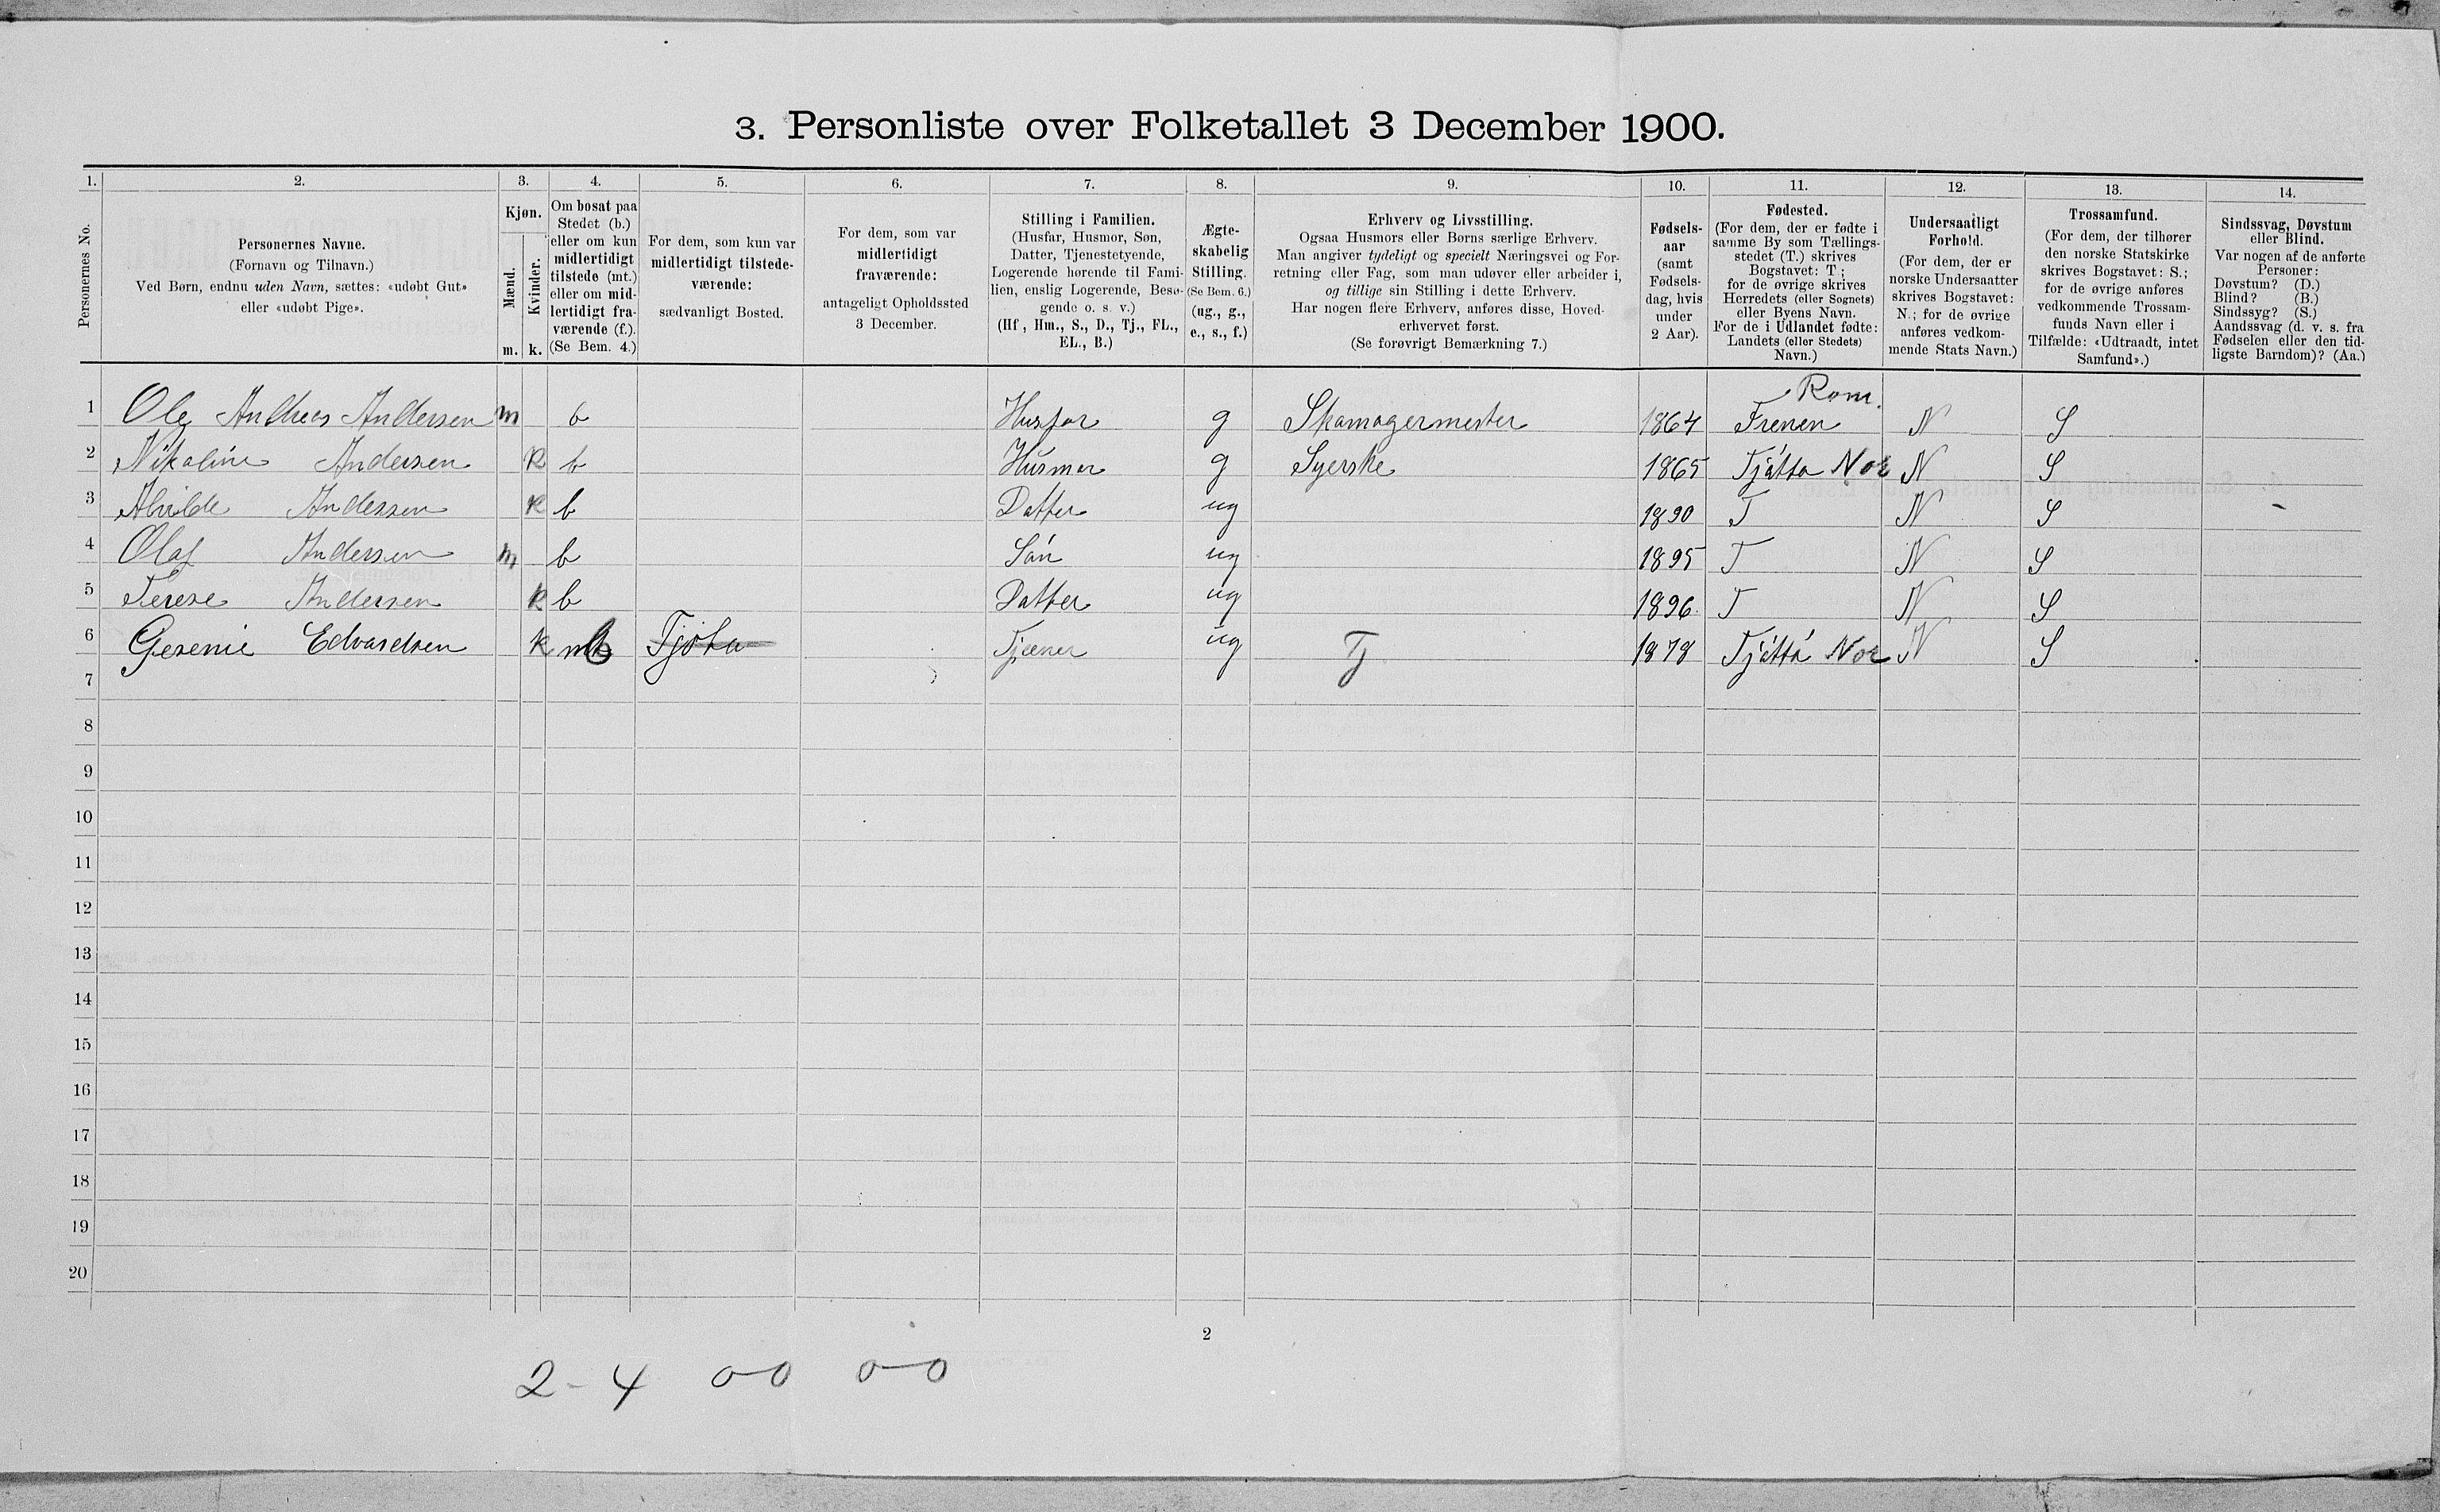 3. Personliste over Folketallet 3 December 1900.
1. 2. 3. 4. 5. 6. 7. 8. 9. 10. 11. 12. 13. 14.
Personernes No.
Personernes Navne.
(Fornavn og Tilnavn.)
Ved Børn, endnu uden Navn, sættes: «udøbt Gut»
eller «udøbt Pige».
Kjøn.
Mænd.
Kvinder.
m. k.
Om bosat paa
Stedet (b.)
eller om kun
midlertidigt
tilstede (mt.)
eller om mid-
lertidigt fra-
værende (f.).
(Se Bem. 4.)
For dem, som kun var
midlertidigt tilstede-
værende:
sædvanligt Bosted.
For dem, som var
midlertidigt
fraværende:
antageligt Opholdssted
3 December.
Stilling i Familien.
(Husfar, Husmor, Søn,
Datter, Tjenestetyende,
Logerende hørende til Fami-
lien, enslig Logerende, Besø-
gende o. s. v.)
(Hf, Hm., S., D., Tj., FL.,
EL., B.)
Ægte-
skabelig
Stilling.
(Se Bem. 6.)
(ug., g.,
e., s., f.)
Erhverv og Livsstilling.
Ogsaa Husmors eller Børns særlige Erhverv.
Man angiver tydeligt og specielt Næringsvei og For-
retning eller Fag, som man udøver eller arbeider i,
og tillige sin Stilling i dette Erhverv.
Har nogen flere Erhverv, anføres disse, Hoved-
erhvervet først.
(Se forøvrigt Bemærkning 7.)
Fødsels-
aar
(samt
Fødsels-
dag, hvis
under
2 Aar).
Fødested.
(For dem, der er fødte i
samme By som Tællings-
stedet (T.) skrives
Bogstavet: T;
for de øvrige skrives
Herredets (eller Sognets)
eller Byens Navn.
For de i Udlandet fødte:
Landets (eller Stedets)
Navn.)
Undersaatligt
Forhold.
(For dem, der er
norske Undersaatter
skrives Bogstavet:
N.; for de øvrige
anføres vedkom-
mende Stats Navn.)
Trossamfund.
(For dem, der tilhører
den norske Statskirke
skrives Bogstavet: S.;
for de øvrige anføres
vedkommende Trossam-
funds Navn eller i
Tilfælde: «Udtraadt, intet
Samfund».)
Sindssvag, Døvstum
eller Blind.
Var nogen af de anførte
Personer:
Døvstum? (D.)
Blind? (B.)
Sindssyg? (S.)
Aandssvag (d. v. s. fra
Fødselen eller den tid-
ligste Barndom)? (Aa.)
Rom.
1 Ole Andreas Andersen m b Husfar g Skomagermester 1864 Frenen N S
2 Nikoline Andersen k b Husmor g Syerske 1865 Tjøtta Nor N S
3 Alvilde Andersen k b Datter ug 1890 T N S
4 Olaf Andersen m b Søn ug 1895 T N S
5 Terese Andersen k b Datter ug 1896 T N S
6 Gesenie Edvardsen k mt b Tjøta Tjener ug Tj 1878 Tjøtta Nor N S
7
8
9
10
11
12
13
14
15
16
17
18
19
20
2
2-4 0-0 0-0